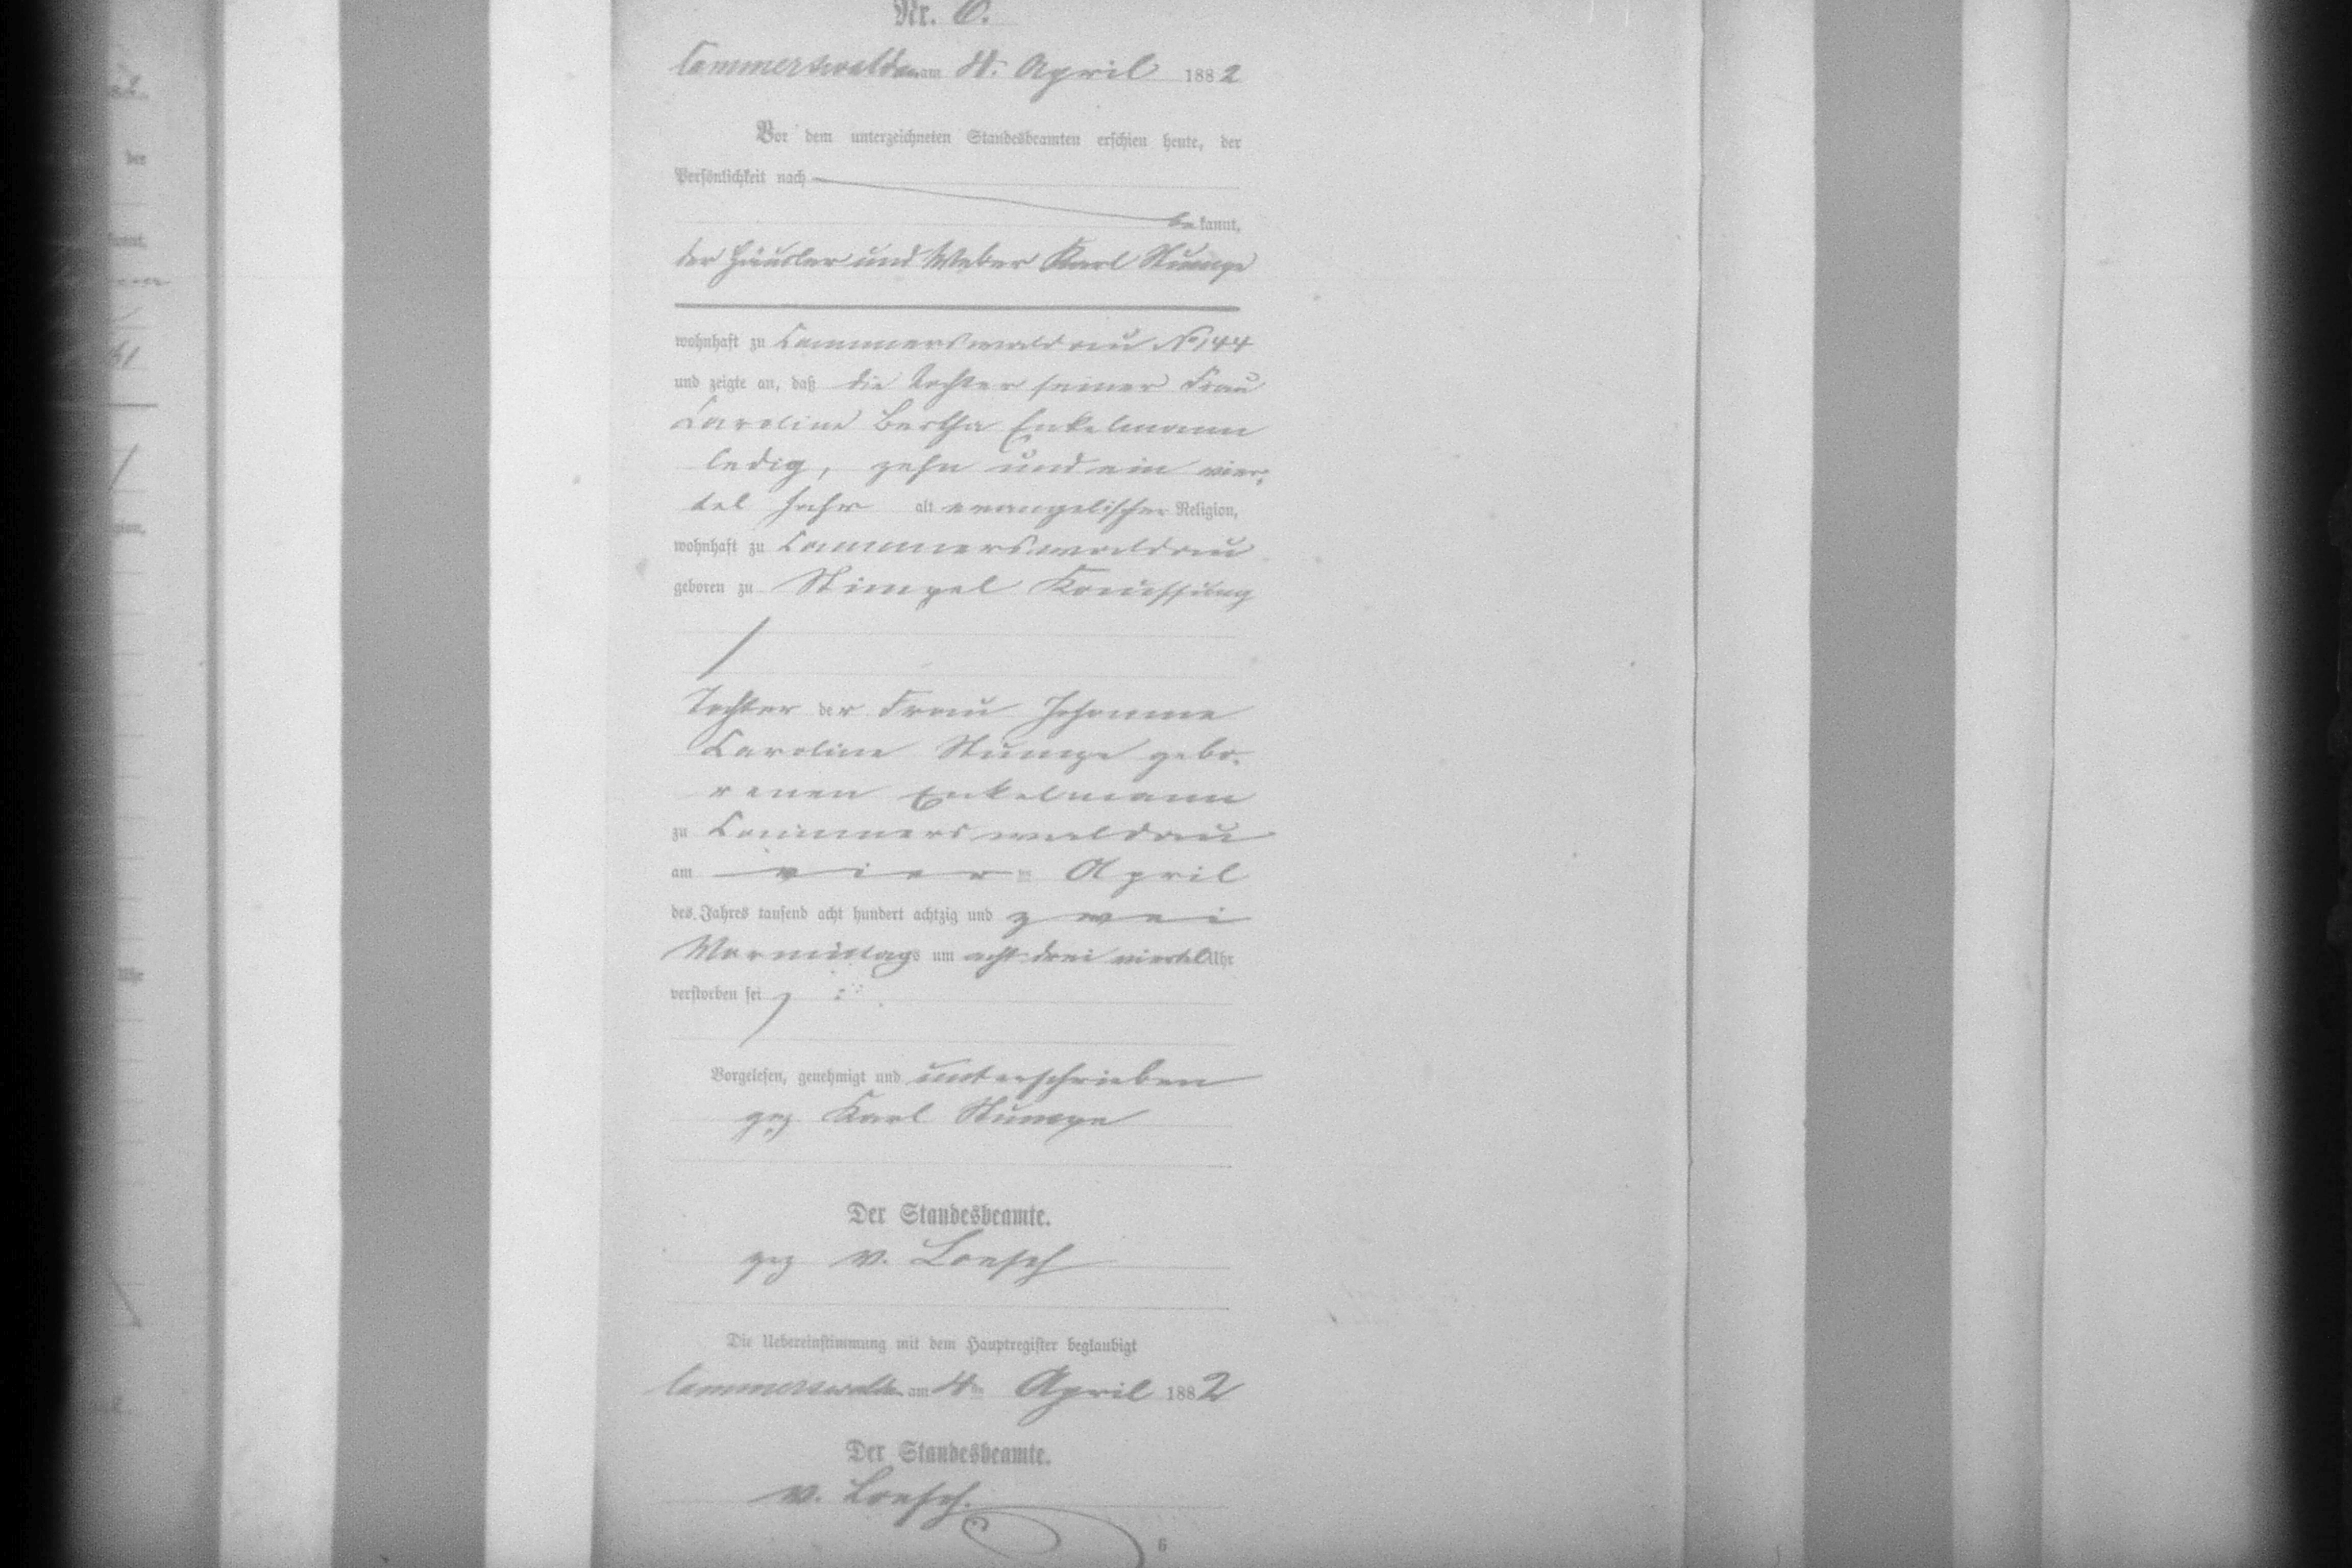 Nr. 6.
Cammerswaldau am 4. April 1882
Vor dem unterzeichneten Standesbeamten erschien heute, der
Persönlichkeit nach
bekannt,
der Häusler und Weber Karl Stumpe
wohnhaft zu Cammerswaldau No 144
und zeigte an, daß die Tochter seiner Frau
Caroline Bertha Enkelmann
ledig, zehn und ein vier-
tel Jahr alt evangelischer Religion,
wohnhaft zu Cammerswaldau
geboren zu Stimpel Kauffung
Tochter der Frau Johanne
Caroline Stumpe gebo-
renen Enkelmann
zu Cammerswaldau
am vierten April
des Jahres tausend acht hundert achtzig und zwei
Vormittags um acht drei viertel Uhr
verstorben sei
Vorgelesen, genehmigt und unterschrieben
gez Karl Stumpe
Der Standesbeamte.
gez v. Loesch
Die Uebereinstimmung mit dem Hauptregister beglaubigt
Cammerswaldau am 4ten April 1882
Der Standesbeamte.
v. Loesch.
6